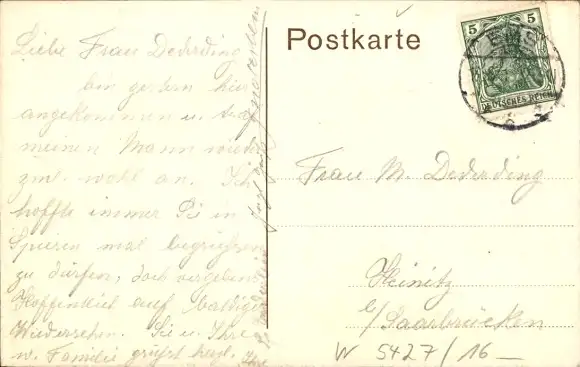 Postkarte
5 5
DEUTSCHES REICH
Liebe Frau Dederding
bin gestern hier
angekommen u. traf
meinen Mann wieder
zml. wohl an. Ich
hoffte immer Sie in
Speyern mal begrüssen
zu dürfen, doch vergebens
Hoffentlich auf baldiges
Wiedersehn. Sie u. Ihre
w. Familie grüsst herzl. Ihre
Frau M. Dederding
Heinitz
b/Saarbrücken
W 5427/16 —